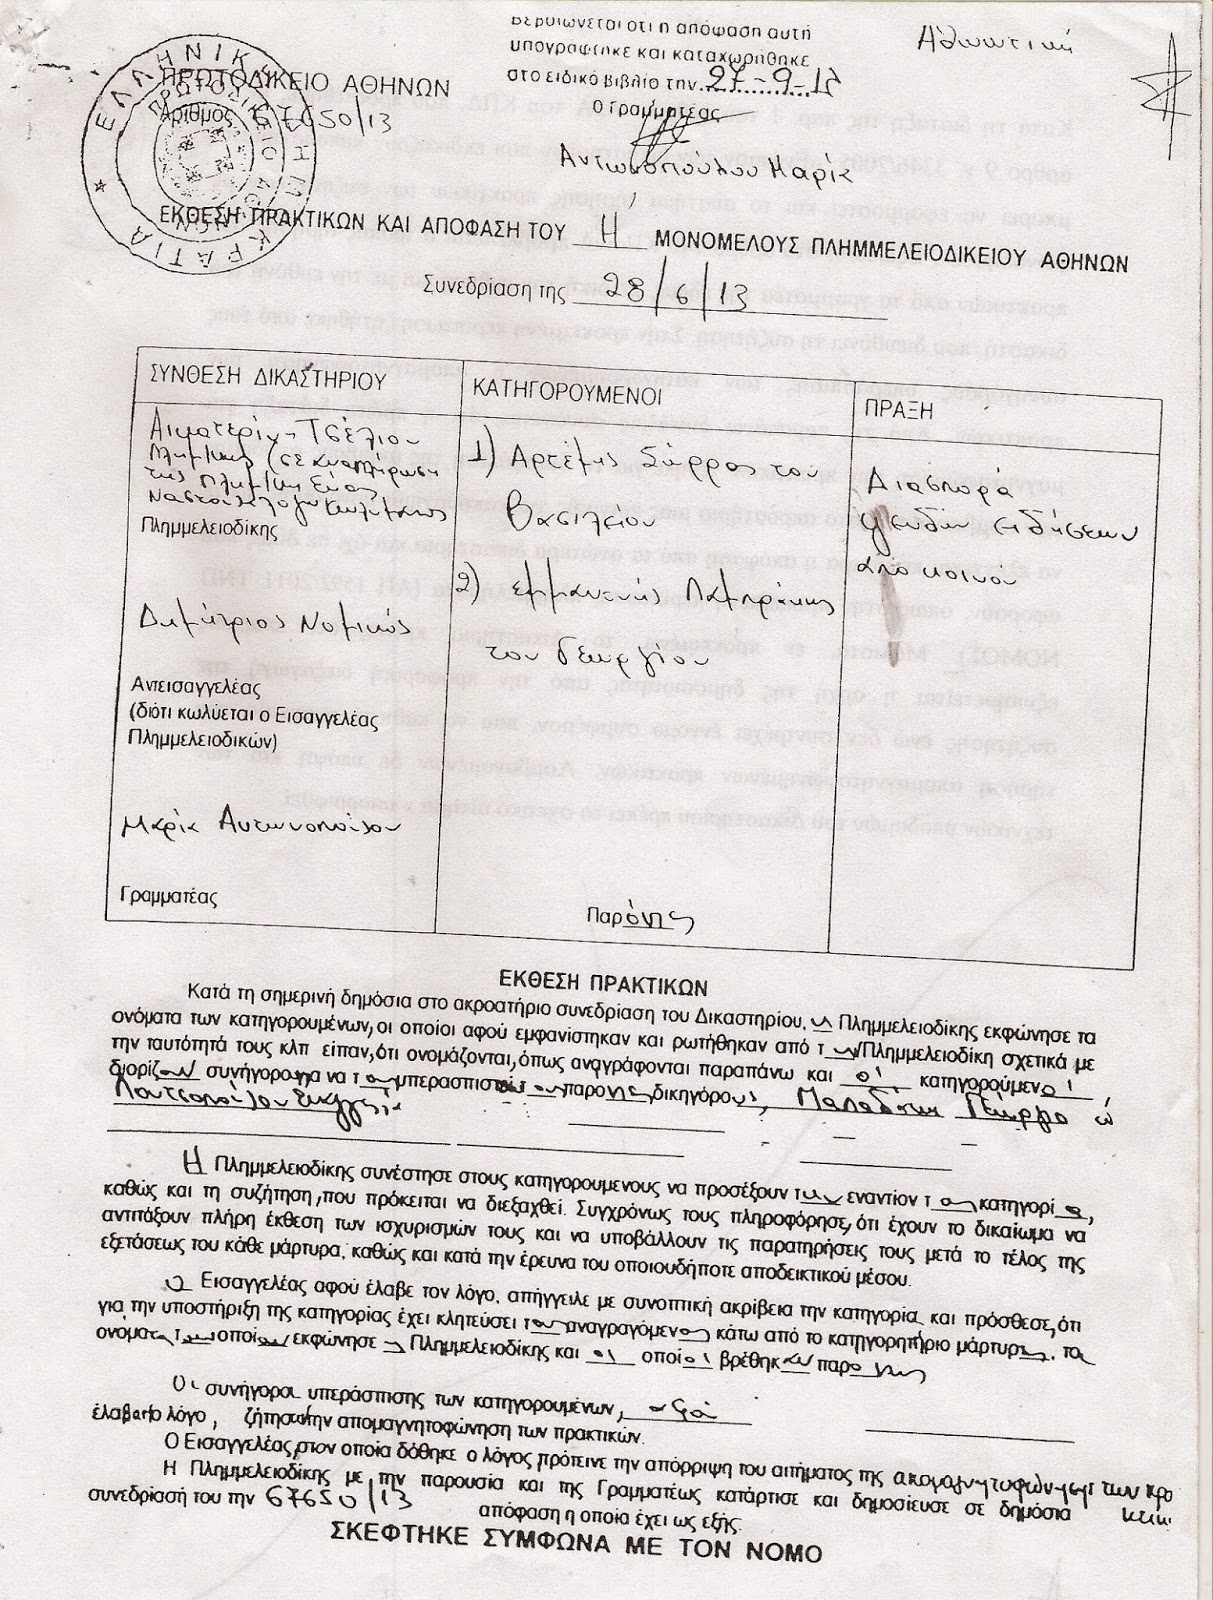 βεβαιώνεται ότι η απόφαση αυτή
υπογράφτηκε και καταχωρήθηκε
στο ειδικό βιβλίο την 27-9-13
Ο Γραμματέας
Αντωνοπούλου Μαρία
Αθωωτική
ΕΛΛΗΝΙΚΗ ΔΗΜΟΚΡΑΤΙΑ
ΠΡΩΤΟΔΙΚΕΙΟ ΑΘΗΝΩΝ
ΠΡΩΤΟΔΙΚΕΙΟ ΑΘΗΝΩΝ
Αριθμος 67650/13
ΕΚΘΕΣΗ ΠΡΑΚΤΙΚΩΝ ΚΑΙ ΑΠΟΦΑΣΗ ΤΟΥ Η' ΜΟΝΟΜΕΛΟΥΣ ΠΛΗΜΜΕΛΕΙΟΔΙΚΕΙΟΥ ΑΘΗΝΩΝ
Συνεδρίαση της 28/6/13
ΣΥΝΘΕΣΗ ΔΙΚΑΣΤΗΡΙΟΥ
Αικατερίνη Τσέλιου
Πλημ/κης (σε αναπλήρωση
της Πλημ/κη Εύας
Πλημμελειοδίκης
Δημήτριος Νομικός
Αντεισαγγελέας
(διότι κωλύεται ο Εισαγγελέας
Πλημμελειοδικών)
Μαρία Αντωνοπούλου
Γραμματέας
ΚΑΤΗΓΟΡΟΥΜΕΝΟΙ
1) Αρτέμης Σώρρας του
Βασιλείου
2) Εμμανουήλ Λαμπράκης
του Γεωργίου
Παρόντες
ΠΡΑΞΗ
Διασπορά
ψευδών ειδήσεων
από κοινού
ΕΚΘΕΣΗ ΠΡΑΚΤΙΚΩΝ
Κατά τη σημερινή δημόσια στο ακροατήριο συνεδρίαση του Δικαστηρίου, η Πλημμελειοδίκης εκφώνησε τα
ονόματα των κατηγορουμένων, οι οποίοι αφού εμφανίστηκαν και ρωτήθηκαν από την Πλημμελειοδίκη σχετικά με
την ταυτότητά τους κλπ είπαν, ότι ονομάζονται, όπως αναγράφονται παραπάνω και οι κατηγορούμενοι,
διορίζουν συνήγορο για να τους υπερασπιστεί τους παρόντες δικηγόρους,
Η Πλημμελειοδίκης συνέστησε στους κατηγορουμενους να προσέξουν την εναντίον τους κατηγορία,
καθώς και τη συζήτηση, που πρόκειται να διεξαχθεί. Συγχρόνως τους πληροφόρησε, ότι έχουν το δικαίωμα να
αντιτάξουν πλήρη έκθεση των ισχυρισμών τους και να υποβάλλουν τις παρατηρήσεις τους μετά το τέλος της
εξετάσεως του κάθε μάρτυρα, καθώς και κατά την έρευνα του οποιουδήποτε αποδεικτικού μέσου.
Ο Εισαγγελέας αφού έλαβε τον λόγο, απήγγειλε με συνοπτική ακρίβεια την κατηγορία και πρόσθεσε, ότι
για την υποστήριξη της κατηγορίας έχει κλητεύσει τους αναγραγόμενους κάτω από το κατηγορητήριο μάρτυρες, τα
ονόματα των οποίων εκφώνησε η Πλημμελειοδίκης και οι οποίοι βρέθηκαν παρόντες
Οι συνήγοροι υπεράσπισης των κατηγορουμένων, αφού
έλαβαν το λόγο, ζήτησαν την απομαγνητοφώνηση των πρακτικών.
Ο Εισαγγελέας, στον οποίο δόθηκε ο λόγος, πρότεινε την απόρριψη του αιτήματος της απομαγνητοφώνησης των πρα
κτικ.
Η Πλημμελειοδίκης με την παρουσία και της Γραμματέως κατάρτισε και δημοσίευσε σε δημόσια
συνεδρίασή του την 67650/13 απόφαση η οποία έχει ως εξής:
ΣΚΕΦΤΗΚΕ ΣΥΜΦΩΝΑ ΜΕ ΤΟΝ ΝΟΜΟ